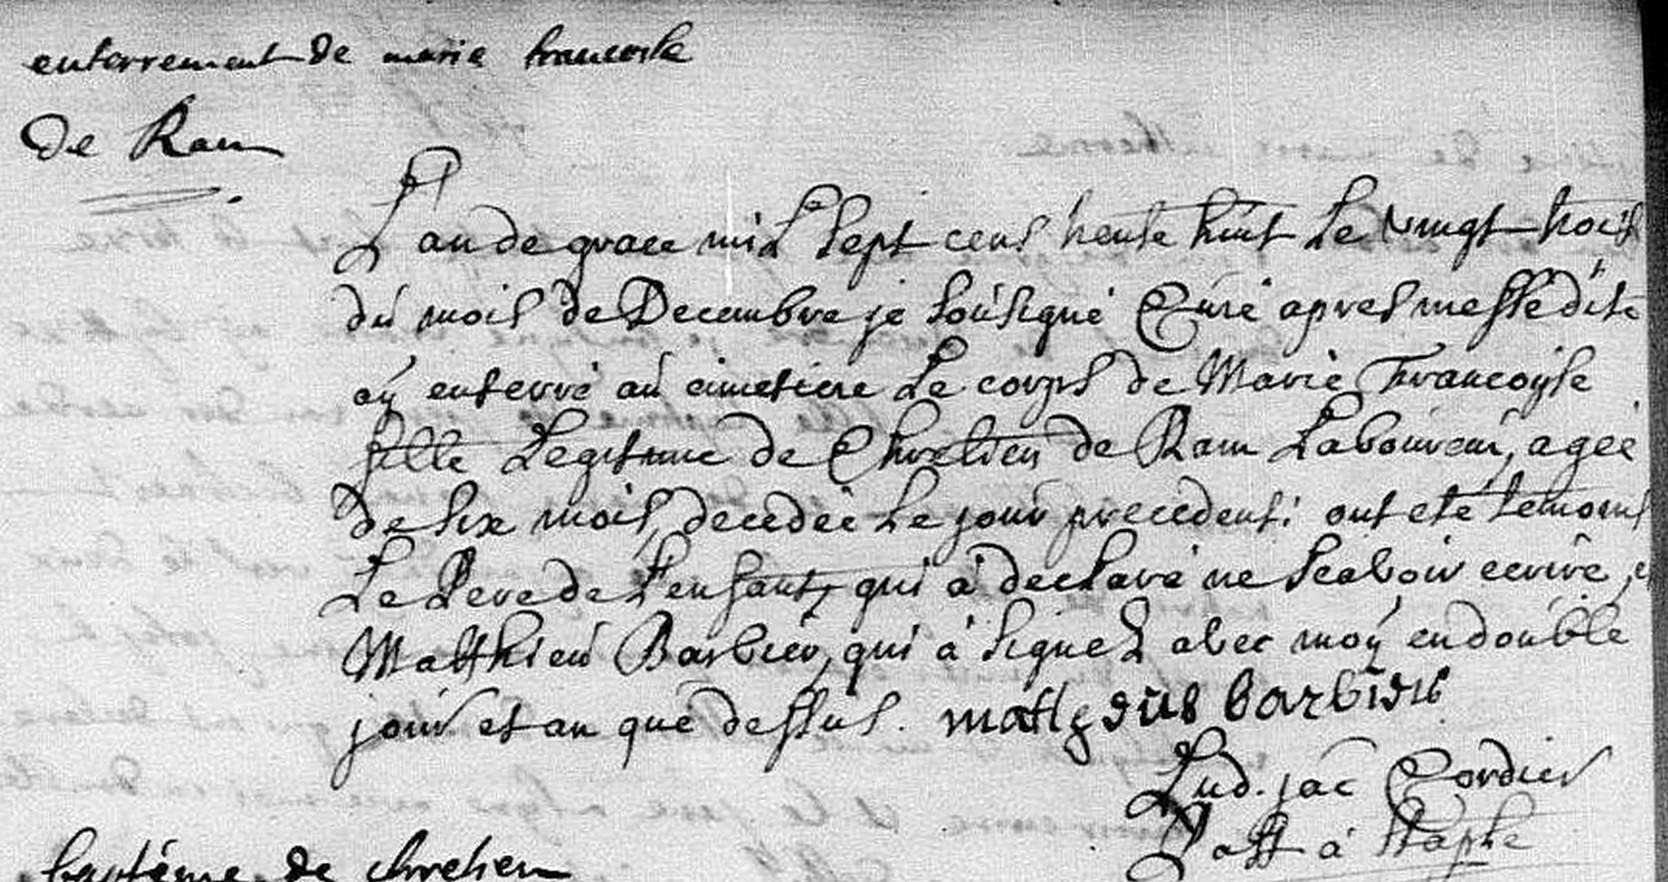 enterrement de marie francoise
de Ram
L'an de grace mil sept cens trente huit le vingt trois
du mois de Decembre je sousigné Curé apres messe dite
aÿ enterré au cimetiere le corps de Marie Francoyse
fille Legitime de Chretien de Ram Laboureur, agée
de six mois, decedée le jour precedent; ont eté temoins
Le Pere de L'enfant, qui à declaré ne scavoir ecrire, et
Matthieu Barbier, qui à signez avec moÿ en double
jour et an que dessus. barbier
Lud. jac Cordier
Past à
baptéme de chretien